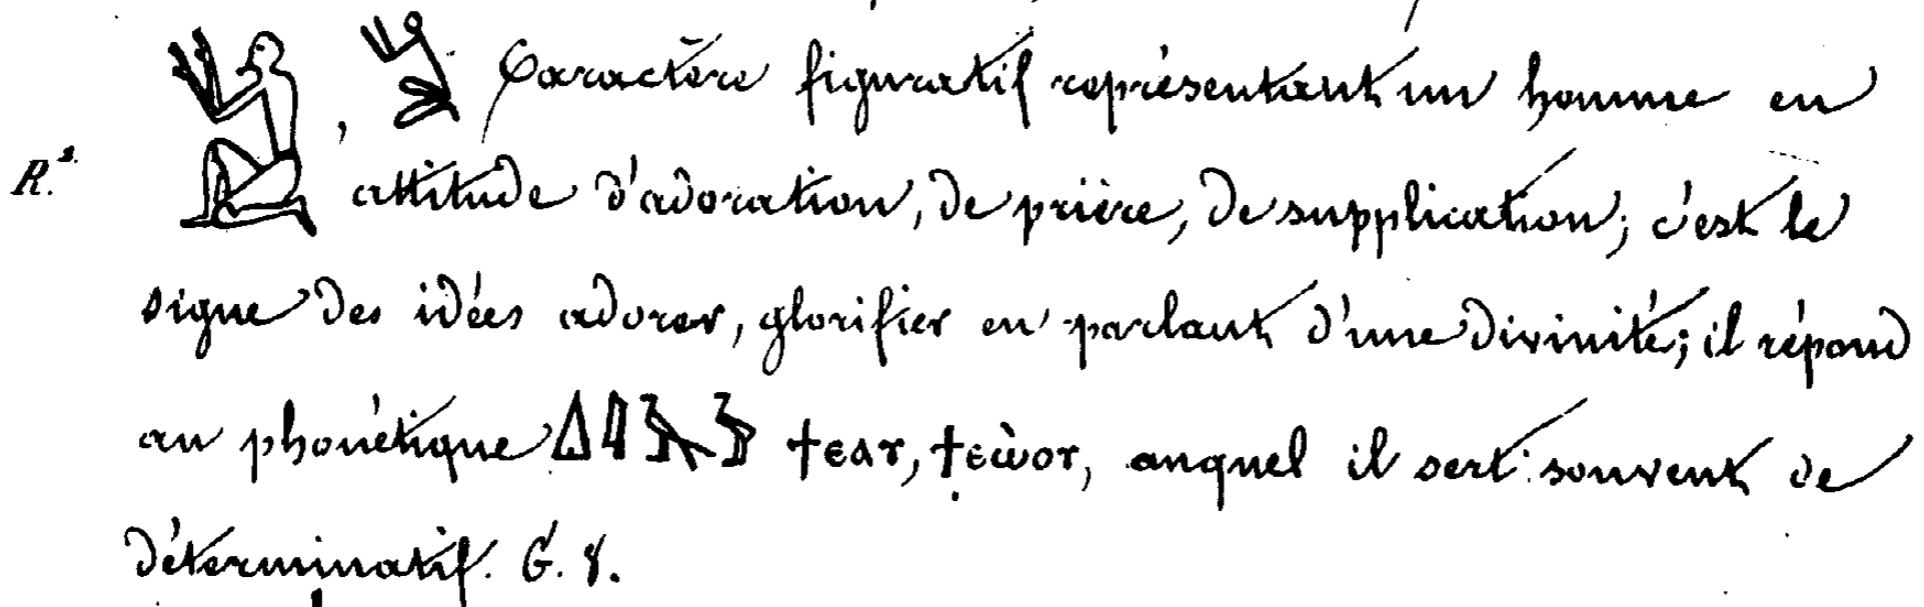 R.² 𓀃, Caractère figuratif représentant un homme en
attitude d'adoration, de prière, de supplication; c'est le
signe des idées adorer, glorifier en parlant d'une divinité; il répond
au phonétique ϯⲉⲁⲩ, ϯⲉⲱⲟⲩ, auquel il sert souvent de
déterminatif. G. 8.